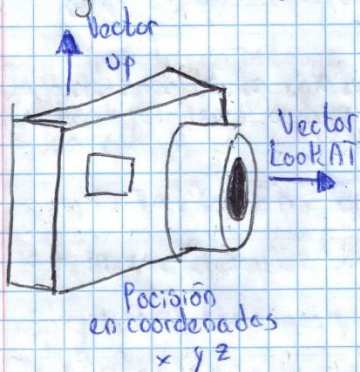 Vector
up
Vector
LookAT
Pocisión
en coordenadas
x y z